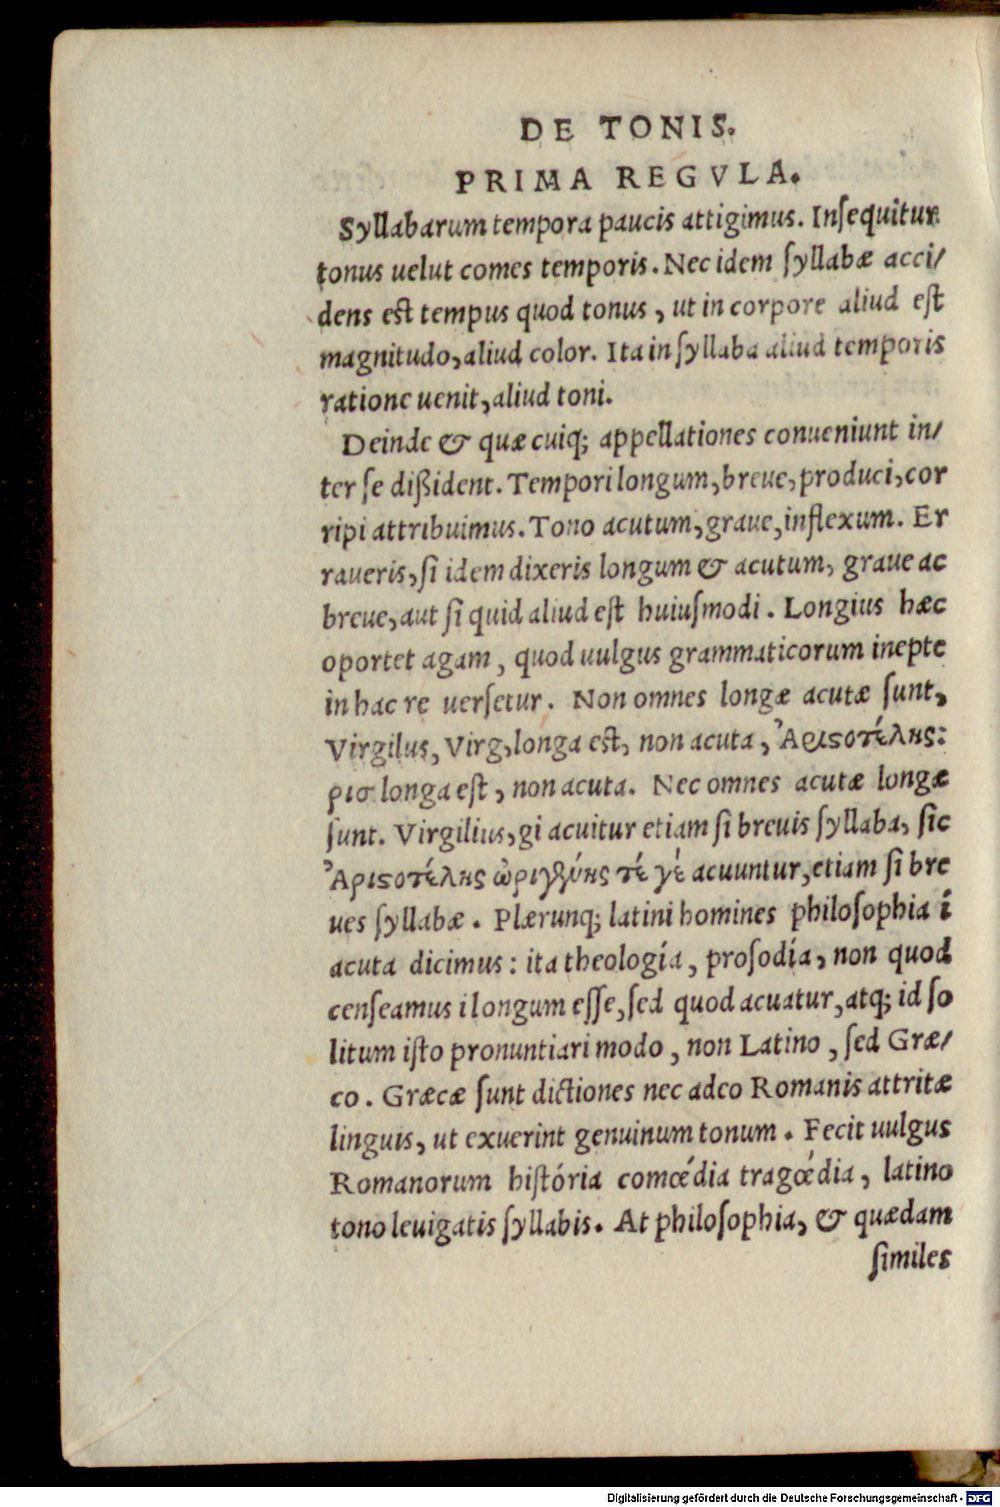 DE TONIS.
PRIMA REGVLA.
Syllabarum tempora paucis attigimus. Inſequitur
tonus uelut comes temporis. Nec idem ſyllabæ acci/
dens eſt tempus quod tonus, ut in corpore aliud eſt
magnitudo, aliud color. Ita in ſyllaba aliud temporis
ratione uenit, aliud toni.
Deinde & quæ cuiq; appellationes conueniunt in/
ter ſe dißident. Tempori longum, breue, produci, cor
ripi attribuimus. Tono acutum, graue, inflexum. Er
raueris, ſi idem dixeris longum & acutum, graue ac
breue, aut ſi quid aliud eſt huiuſmodi. Longius hæc
oportet agam, quod uulgus grammaticorum inepte
in hac re uerſetur. Non omnes longæ acutæ ſunt,
Virgilus, Virg, longa eſt, non acuta, Ἀριϛοτέλης:
ρισ longa eſt, non acuta. Nec omnes acutæ longæ
ſunt. Virgilius, gi acuitur etiam ſi breuis ſyllaba, ſic
Ἀριϛοτέλης τέ γέ acuuntur, etiam ſi bre
ues ſyllabæ. Plærunq; latini homines philoſophia í
acuta dicimus: ita theología, proſodía, non quod
cenſeamus i longum eſſe, ſed quod acuatur, atq; id ſo
litum iſto pronuntiari modo, non Latino, ſed Græ/
co. Græcæ ſunt dictiones nec adeo Romanis attritæ
linguis, ut exuerint genuinum tonum. Fecit uulgus
Romanorum hiſtória comœ́dia tragœ́dia, latino
tono leuigatis ſyllabis. At philoſophia, & quædam
ſimiles
Digitalisierung gefördert durch die Deutsche Forschungsgemeinschaft - DFG